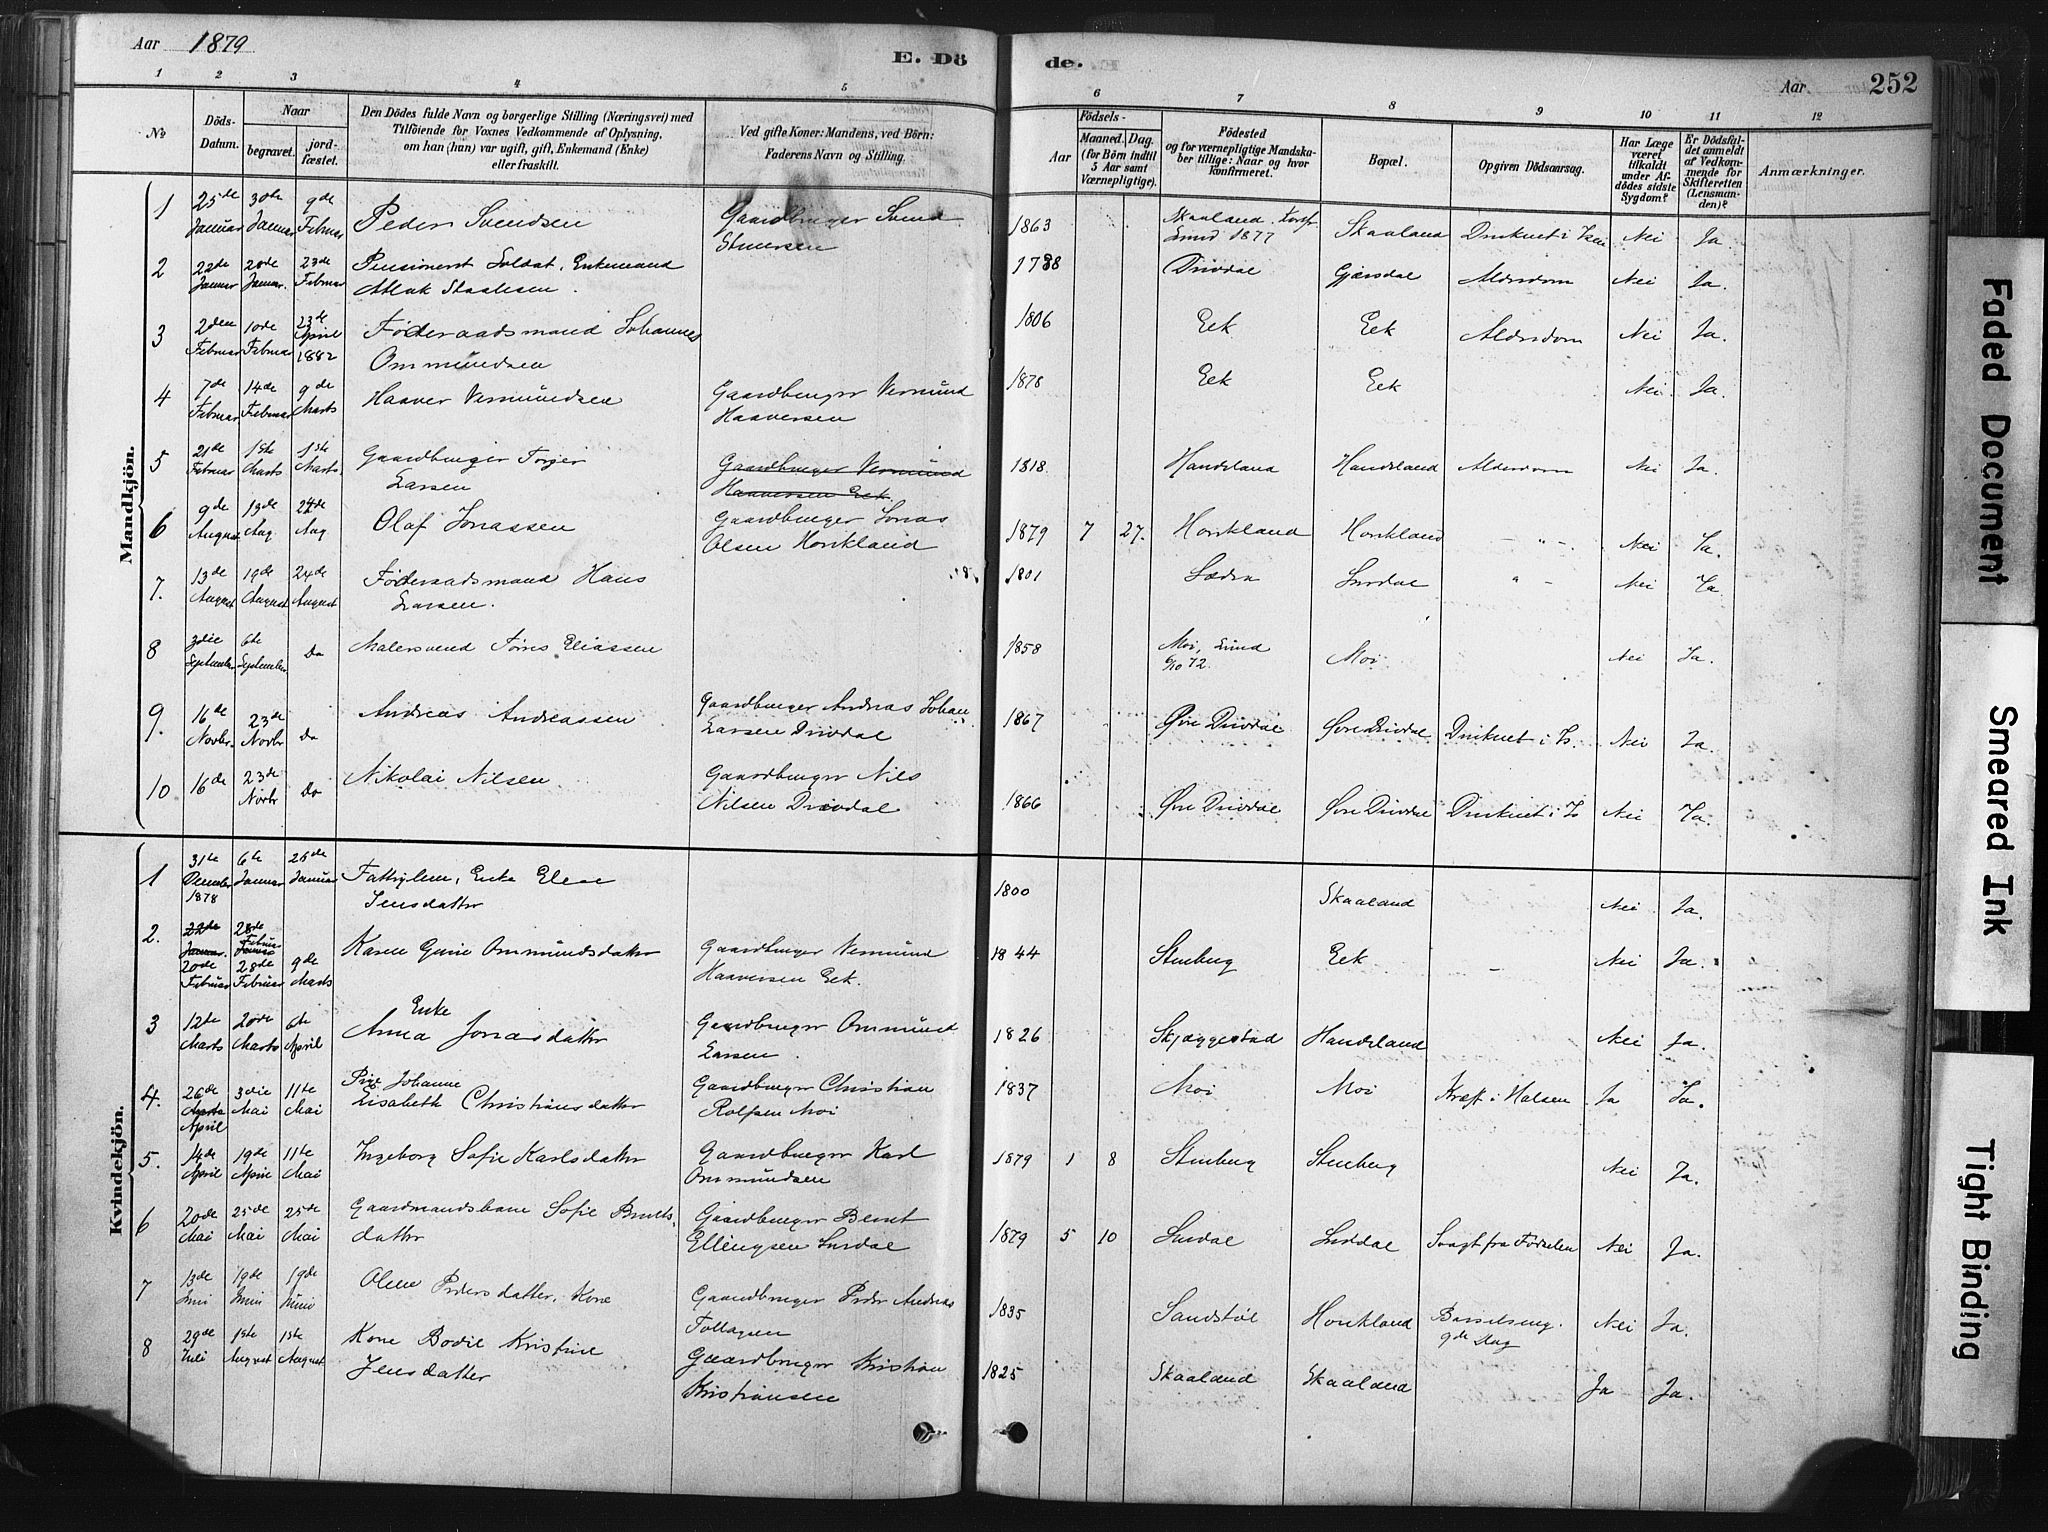 Aar 1879
E. Dö
de.
Aar
252
1 2 3 4 5 6 7 8 9 10 11 12
No
Döds-Datum.
Naar
begravet.
jord-fæstet.
Den Dödes fulde Navn og borgerlige Stilling (Næringsvei) med
Tilföiende for Voxnes Vedkommende af Oplysning,
om han (hun) var ugift, gift, Enkemand (Enke)
eller fraskilt.
Ved gifte Koner: Mandens, ved Börn:
Faderens Navn og Stilling.
Födsels-
Aar
Maaned. Dag.
(for Börn indtil
5 Aar samt
Værnepligtige).
Födested
og for værnepligtige Mandska-
ber tillige: Naar og hvor
konfirmeret.
Bopæl.
Opgiven Dödsaarsag.
Har Læge
været
tilkaldt
under Af-
dödes sidste
Sygdom?
Er Dödsfal-
det anmeldt
af Vedkom-
mende for
Skifteretten
(Lensman-
den)?
Anmærkninger.
Mandkjön.
1 25de Januar 30te Januar 9de Februar Peder Svendsen Gaardbruger Svend 1863 Skaaland Skaaland Nei Ja
Lund 1877
2 22de Januar 28de Januar. 23de Februar Pensioneret Soldat, Enkemand 1788 Drivdal Gjærsdal Aldersdom Nei Ja.
Atlak Staalesen.
3 2den Februar 10de Februar 23de April 1882 Føderaadsmand Johannes 1806 Eek Eek Aldersdom Nei Ja.
Ommundsen
4 7de Februar 14de Februar 9de Marts Haaver Vermundsen Gaardbruger Vermund 1878 Eek Eek Nei Ja.
Haaversen
5 21de Februar 1ste Marts 1ste Marts. Gaardbruger Torjer Gaardbruger Vermund 1818 Handeland Handeland Alderdom Nei Ja.
Larsen Haaversen Eek.
6 9de August 13de Aug. 24de Aug Olaf Jonassen Gaardbruger Jonas 1879 7 27. Hovikland Hovikland – " –. Nei Ja.
Olsen Hovikland
7. 13de August 19de August 24de August Føderaadsmand Hans 1801 Surdal " – Nei Ja
Larsen.
8 3die September 6te September Do Malersvend Tørres Eliassen 1858 Moi, Lund Moi Nei Ja.
6/10 72.
9. 16de Novbr. 23de Novbr Do Andreas Andreassen Gaardbruger Andreas Johan 1867 Øvre Drivdal Øvre Drivdal Druknet i Is. Nei Ja.
Larsen Drivdal
10 16de 23de Novbr Do Nikolai Nilsen Gaardbruger Nils 1866 Øvre Drivdal Øvre Drivdal Druknet i Is Nei Ja.
Nilsen Drivdal
Kvindekjön.
1 31te December 1878 6te Januar 26de Januar Fattiglem, Enke Elen 1800 Skaaland Nei Ja.
Jensdatter
2. 22de Januar. 28de Februar Januar
20de Februar 28de Februar 9de Marts Karen Gurie Ommundsdatter Gaardbruger Vermund 1844 Stenberg Eek – Nei Ja.
Haaversen Eek.
3 12te Marts 20de Marts 6te April Enke Anna Jonasdatter Gaardbruger Ommund 1826 Skjæggestad Handeland Nei Ja.
Larsen.
4. 26de Marts April 3die Mai 11te Mai Pige Johanne Gaardbruger Christian 1837 Moi Moi Kræft i Halsen Ja Ja.
Elisabeth Christiansdatter Rolfsen Moi
5. 14de April 19de April 11te Mai Ingeborg Sofie Karlsdatter Gaardbruger Karl 1879 1 8 Stenberg Stenberg Nei Ja.
Ommundsen
6 20de Mai 25de Mai 25de Mai Gaardmandsbarn Sofie Berits- Gaardbruger Berret 1879 5 10 Surdal Surdal Svagt fra Fødselen Nei Ja.
datter Ellingsen Surdal
7 13de Juni 19de Juni 19de Juni Olene Pedersdatter, Kone Gaardbruger Peder Andreas 1835 Sandstøl Hovikland Barselseng. Nei Ja.
Tollagsen 9de Dag
8 29de Juli 1ste August 1ste August Kone Bodil Kristine Gaardbruger Kristian 1825 Skaaland Skaaland Ja Ja.
Jensdatter Kristiansen
Faded Document
Smeared Ink
Tight Binding